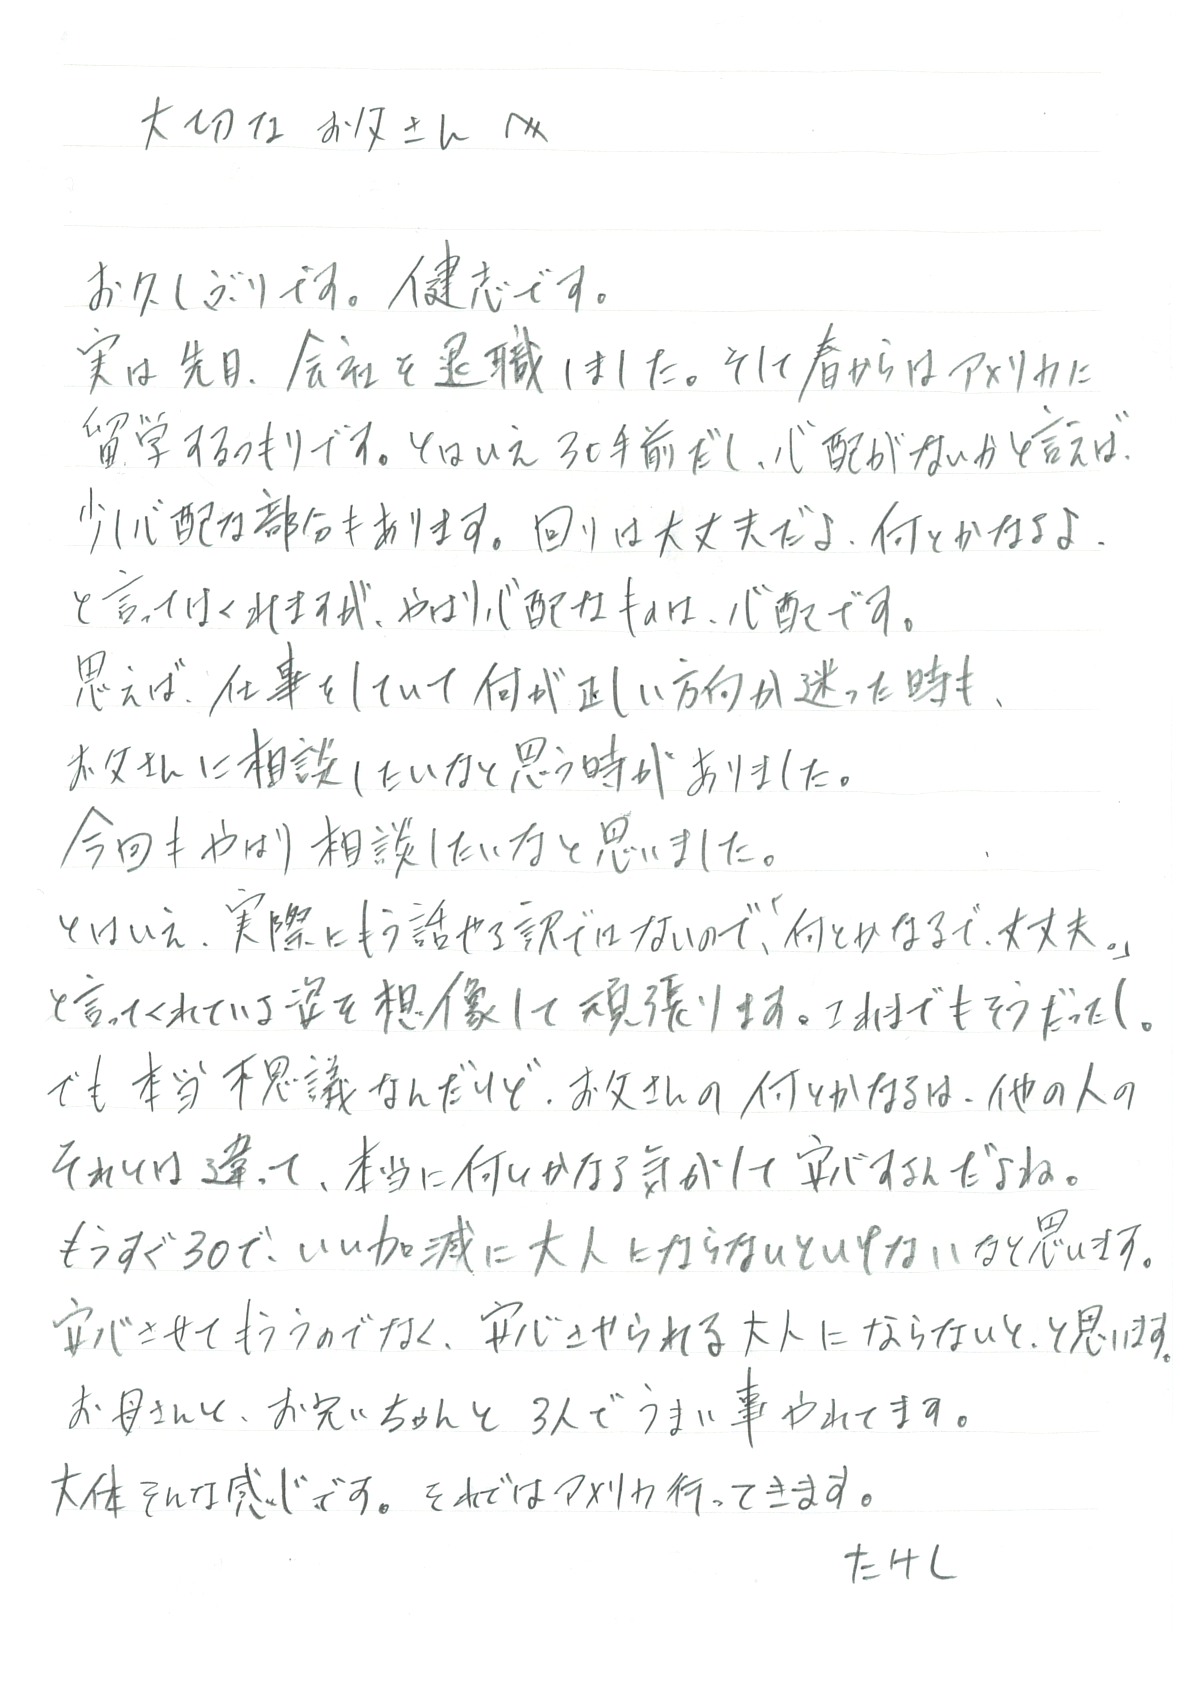 大切な お父さんへ
お久しぶりです。健志です。
実は先日、会社を退職しました。そして春からはアメリカに
留学するつもりです。とはいえ30手前だし、心配がないかと言えば、
少し心配な部分もあります。回りは大丈夫だよ、何とかなるよ、
と言ってはくれますが、やはり心配なものは、心配です。
思えば、仕事をしていて何が正しい方向か迷った時も、
お父さんに相談したいなと思う時がありました。
今回もやはり相談したいなと思いました。
とはいえ、実際にもう話せる訳ではないので、「何とかなるで、大丈夫。」
と言ってくれている姿を想像して頑張ります。これまでもそうだったし。
でも本当不思議なんだけど、お父さんの何とかなるは、他の人の
それとは違って、本当に何とかなる気がして安心するんだよね。
もうすぐ30で、いい加減に大人にならないといけないなと思います。
安心させてもらうのでなく、安心させられる大人にならないと、と思います。
お母さんと、お兄ちゃんと3人でうまい事やれてます。
大体そんな感じです。それではアメリカ行ってきます。
たけし